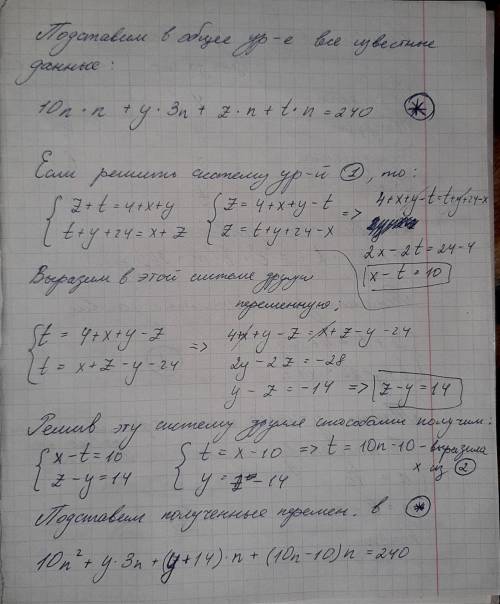 Подставим в общее ур-е все известные
данные:
10n · n + y · 3n + z · n + t · n = 240 (*)
Если решить систему ур-й ①, то:
{ z + t = 4 + x + y { z = 4 + x + y - t => 4 + x + y - t = t + y + 24 - x
{ t + y + 24 = x + z { z = t + y + 24 - x
2x - 2t = 24 - 4
x - t = 10
Выразим в этой системе другую
переменную:
{ t = 4 + x + y - z => 4 + x + y - z = x + z - y - 24
{ t = x + z - y - 24 2y - 2z = -28
y - z = -14 => z - y = 14
Решив эту систему двумя способами получим:
{ x - t = 10 { t = x - 10 => t = 10n - 10 - выразила
{ z - y = 14 { y = z - 14 x из ②
Подставим полученные перемен. в (*)
10n² + y · 3n + (y + 14) · n + (10n - 10) n = 240